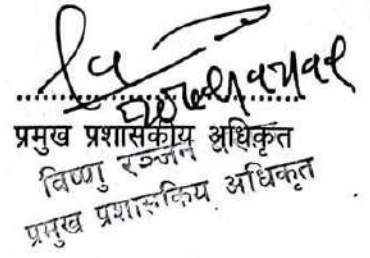 प्रमुख प्रशासकीय अधिकृत
विष्णु रञ्जन
प्रमुख प्रशासकिय अधिकृत